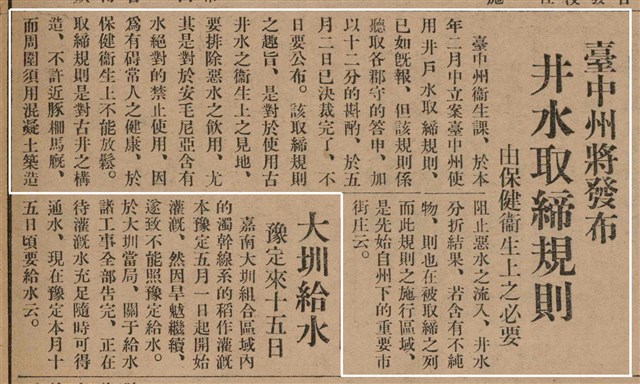 臺中州將發布
井水取締規則
由保健衞生上之必要
臺中州衞生課、於本
年二月中立案臺中州使
用井戶水取締規則、
已如旣報、但該規則係
聽取各郡守的答申、加
以十二分的斟酌、於五
月二日已決裁完了、不
日要公布。該取締規則
之趣旨、是對於使用古
井水之衞生上之見地、
要排除惡水之飲用、尤
其是對於安毛尼亞含有
水絕對的禁止使用、因
爲有碍常人之健康、於
保健衞生上不能放鬆。
取締規則是對古井之構
造、不許近豚柵馬廐、
而周圍須用混凝土築造
阻止惡水之流入、井水
分折結果、若含有不純
物、則也在被取締之列
而此規則之施行區域、
是先始自州下的重要市
街庄云。
大圳給水
豫定來十五日
嘉南大圳組合區域內
的濁幹線系的稻作灌漑
本豫定五月一日起開始
灌漑、然因旱魃繼續、
遂致不能照豫定給水。
於大圳當局、關于給水
諸工事全部告完、正在
待灌漑水充足隨時可得
通水、現在豫定本月十
五日頃要給水云。